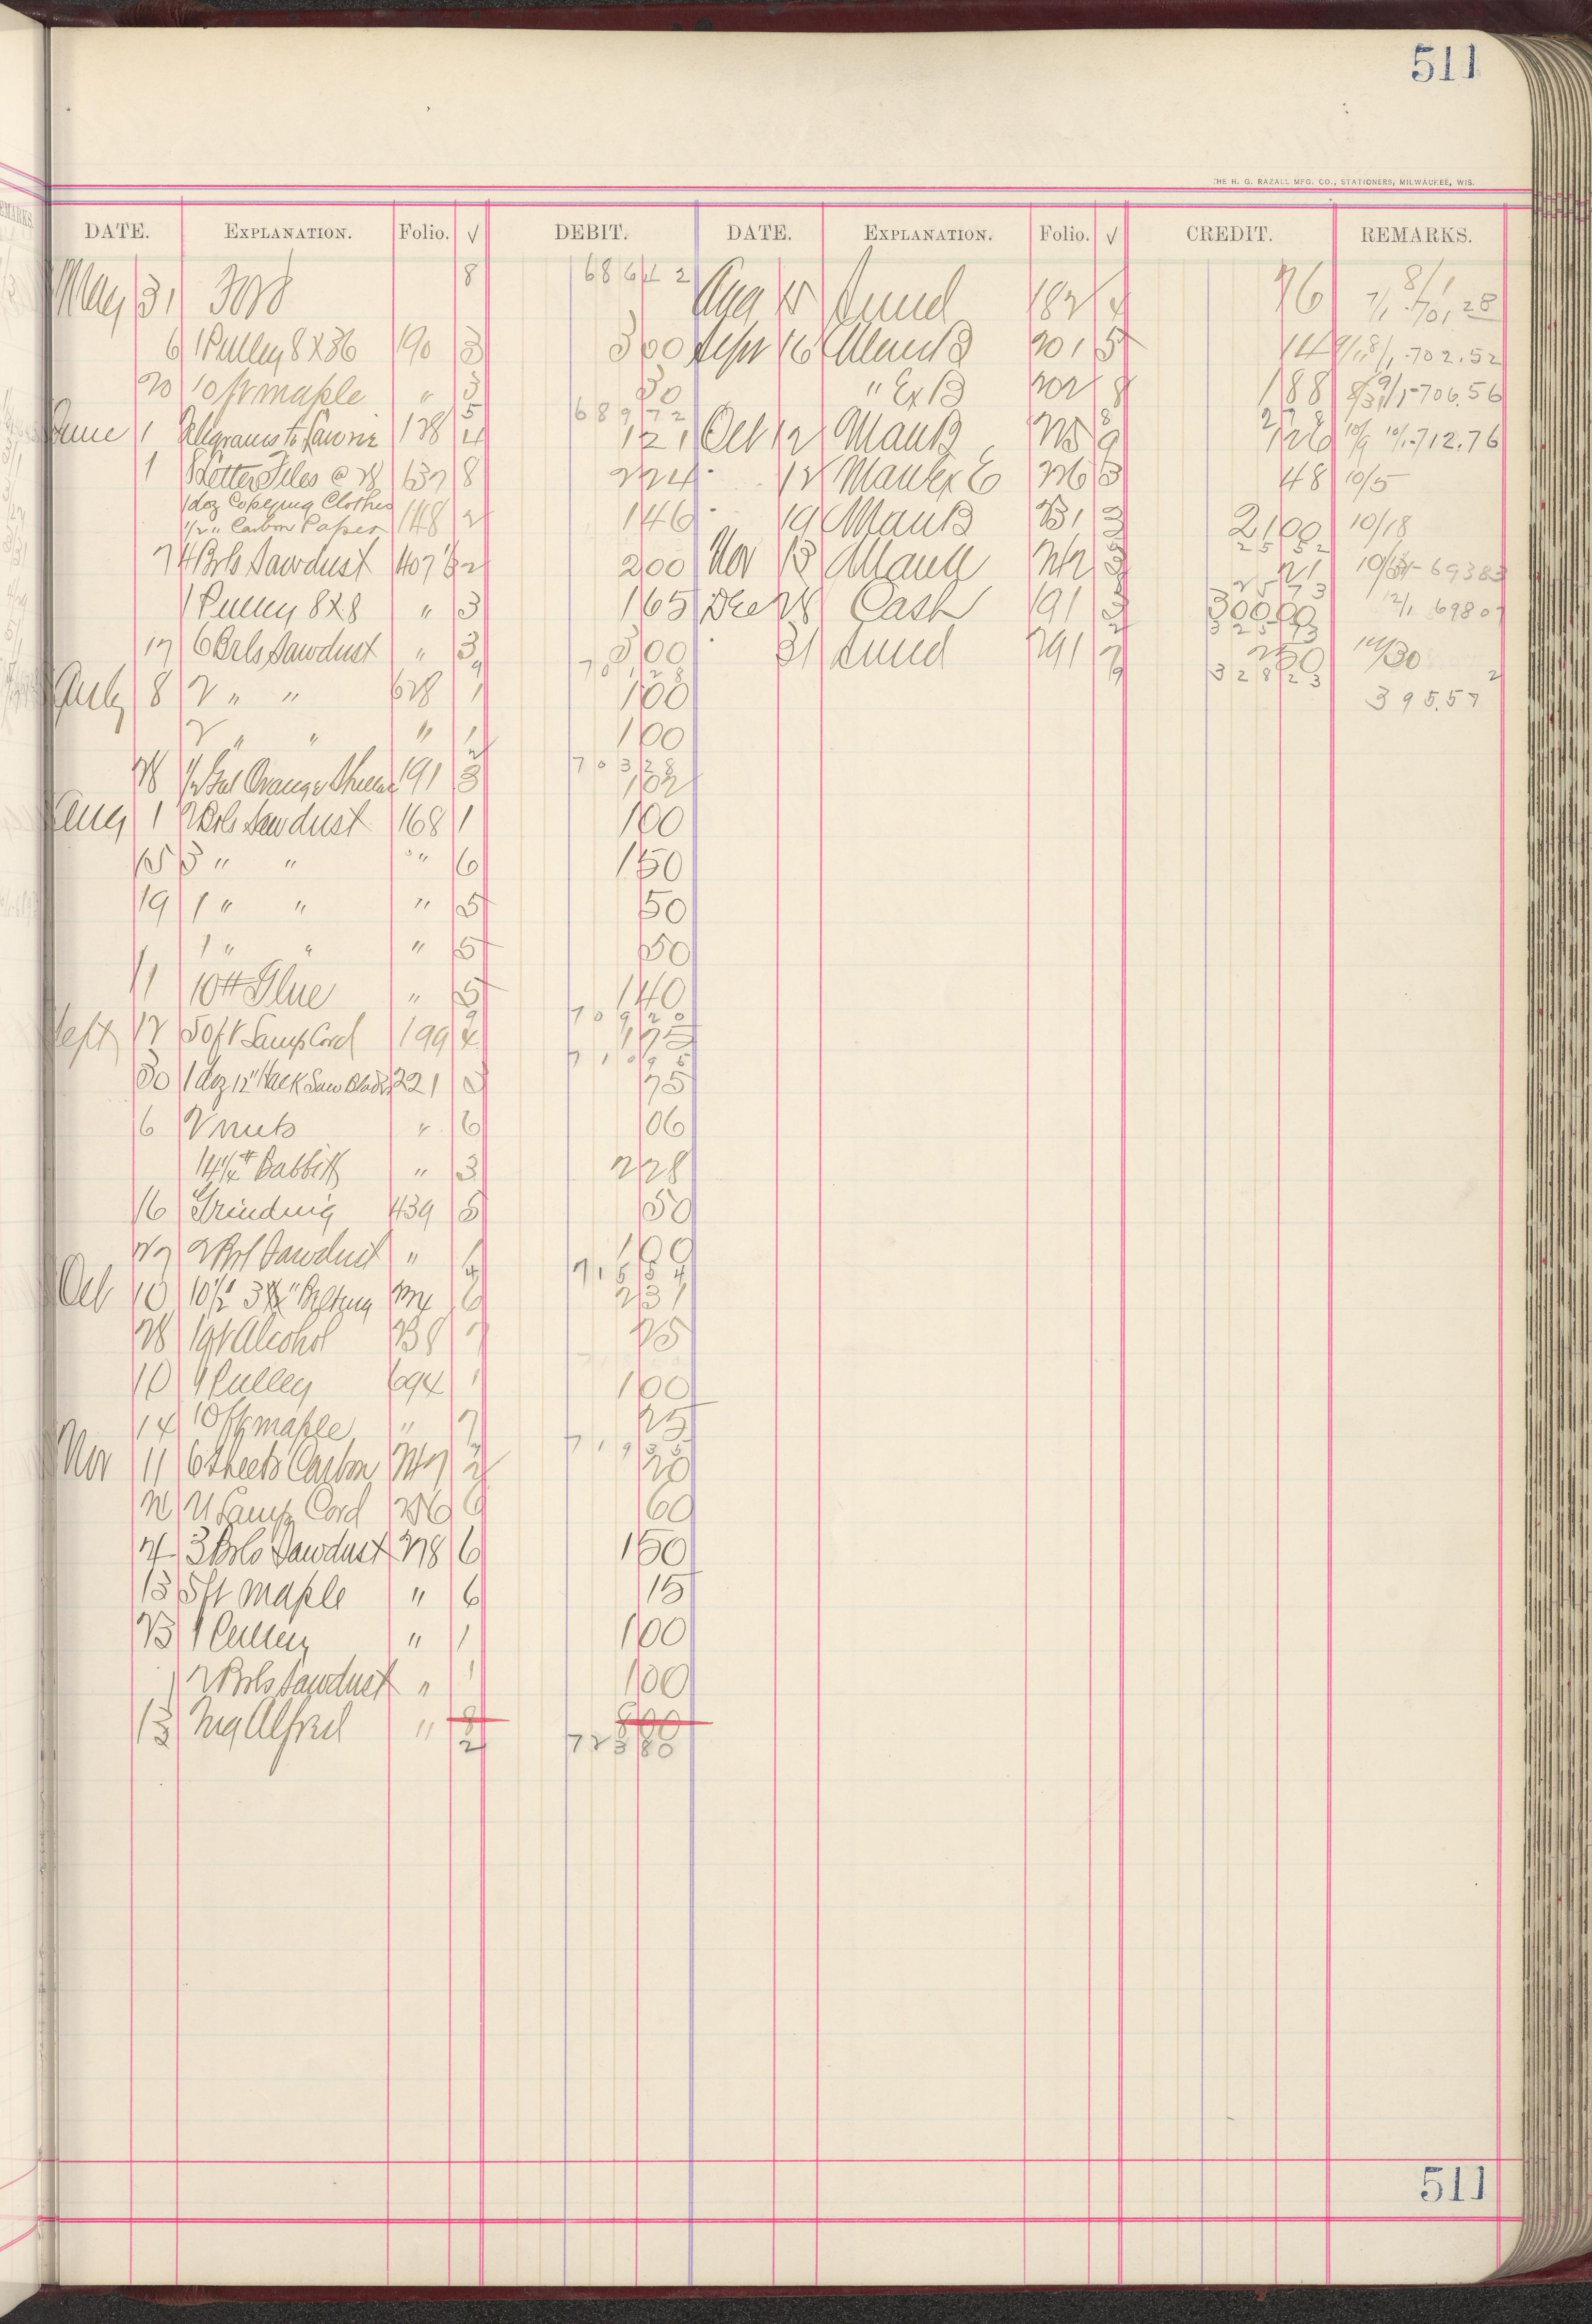 511
THE H. G. RAZALL MFG. CO., STATIONERS, MILWAUKEE, WIS.
DATE. EXPLANATION. Folio. √ DEBIT. DATE. EXPLANATION. Folio. √ CREDIT. REMARKS.
May 31 Ford 8 686 42 Aug 15 Sund 182 4 76 8/1 7/1-701,28
6 1 Pulley 8X36 190 3 3 00 Sept 16 Manu B 201 5 14 702.52
20 10 ft maple " 3 30 " Ex B 202 8 1 88 9/1-706.56
689 72
June 1 Telegrams to 138 4 1 21 Oct 12 Manu B 9 1 26 10/9 10/1-712.76
1 8 Letter Files @ 28 637 8 2 24 12 Manu Ex E 226 3 48 10/5
1 doz Copying Clothes
1/2 " Carbon Paper 148 2 1 46 19 Manu B 231 3 21 00 10/18
25 52
7 4 Brls Sawdust 407 2 2 00 Nov 13 Manu 242 3 21 10/31-69383
25 73
1 Pulley 8X8 " 3 1 65 Dec 28 Cash 191 3 300 00 12/1 69807
325 73
17 6 Brls Sawdust " 3 3 00 31 Sund 291 2 50 12/30
701 28 328 23
July 8 2 " " 628 1 1 00 395.57
2 " " " 1 1 00
703 28
28 1/2 Gal Orange Shellac 191 3 1 02
Aug 1 2 Brls Sawdust 168 1 1 00
15 3 " " " 6 1 50
19 1 " " " 5 50
1 " " " 5 50
11 10# Glue " 5 1 40
709 20
Sept 12 50 ft Lamp Cord 199 4 1 75
710 95
30 1 doz 12" Hack Saw Blades 221 3 75
6 2 nuts " 6 06
14 1/4# Babbitt " 3 2 28
16 Grinding 439 5 50
27 2 Brl Sawdust " 1 1 00
Oct 10 10 1/2 Belting 6 2 31
28 1 qt Alcohol 238 7 25
10 1 Pulley 694 1 1 00
14 10 ft maple " 7 25
719 35
Nov 11 6 Sheets Carbon 247 2 20
22 Lamp Cord 6 60
4 3 Brls Sawdust 278 6 1 50
13 5 ft maple " 6 15
23 1 Pulley " 1 1 00
2 Brls Sawdust " 1 1 00
13 Alfred " 8 8 00
2 723 80
511